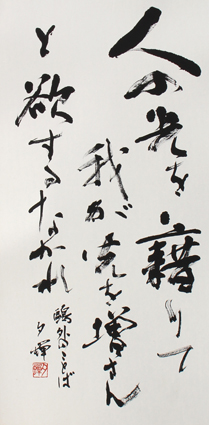 人の光を藉りて
我が光を増さん
と欲するなかれ
鴎外のことば
夕輝